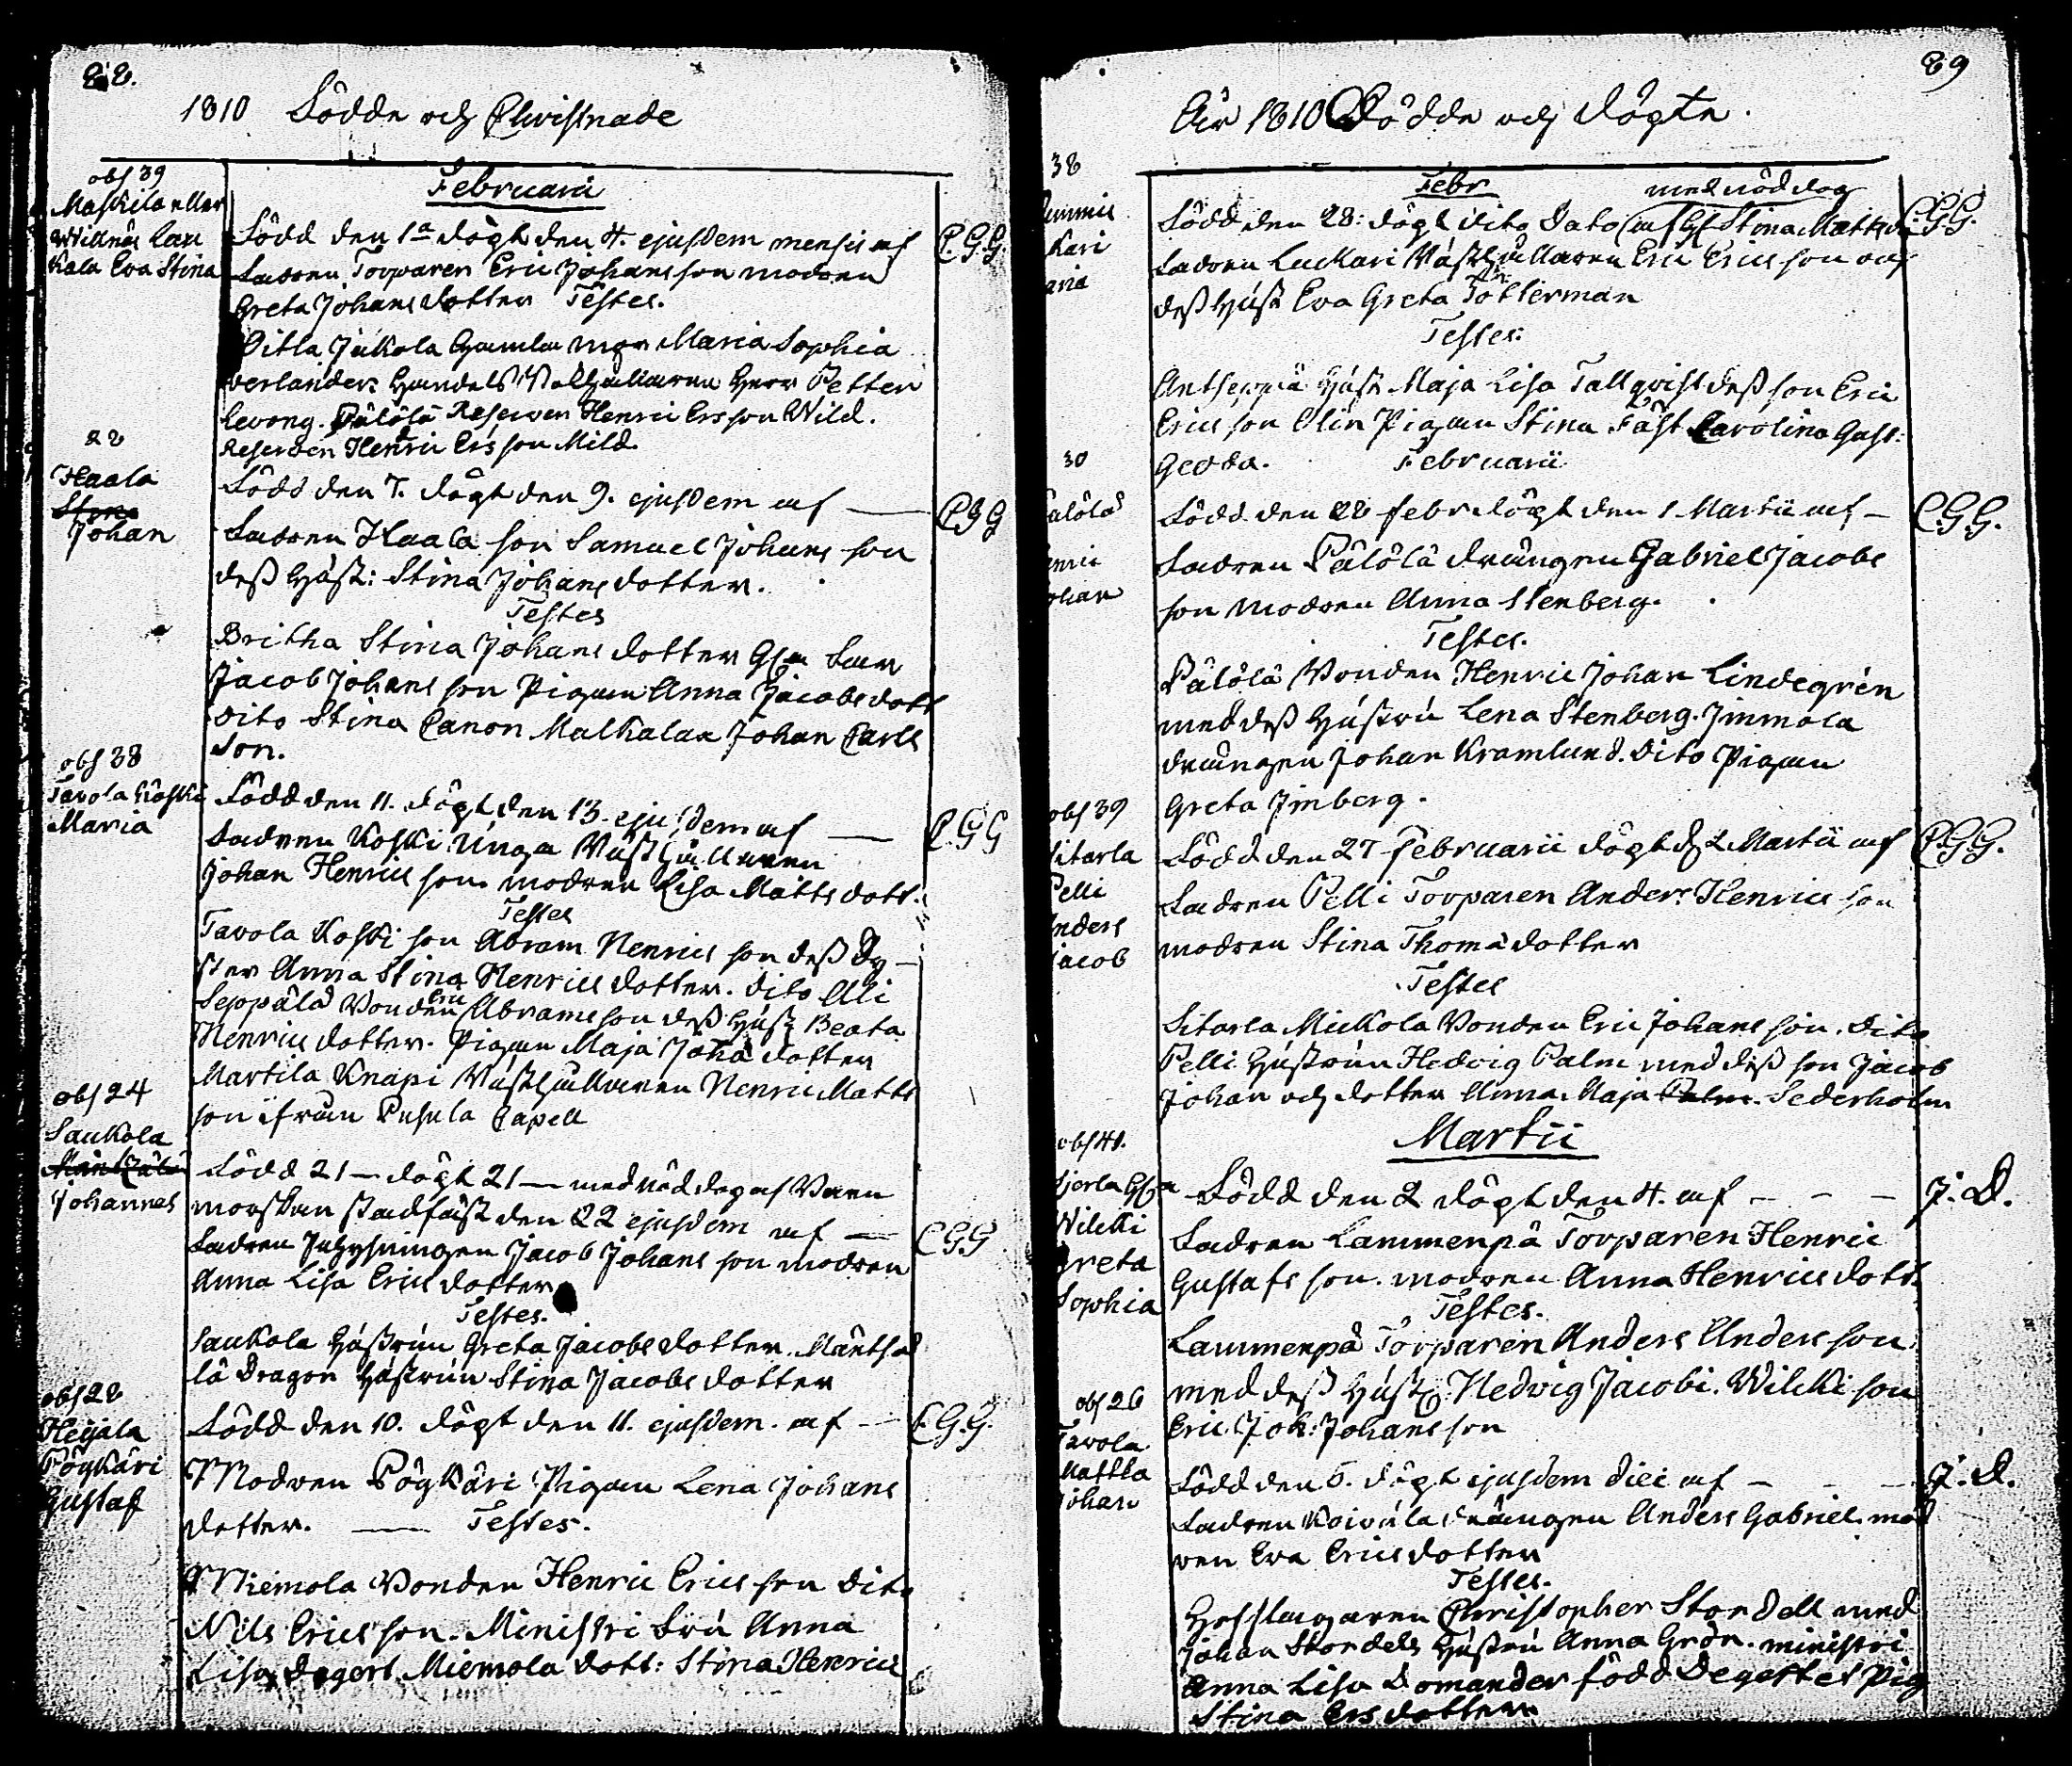 88.
1810 Födde och Christnade
Februarii
obs 39
Maskila eller
Willnäs Lau
kala Eva Stina
Född den 1a döpt den 4. ejusdem mensis af
Fadren Torparen Eric Johansson modren
Greta Johansdotter Testes.
C.G.G.
Oitla Jukola Gamla mor Maria Sophia
Handels Herr Petter
Levong. Pälölä Reserven Henric Ersson Wild.
Reserven Henric Ersson Mild
28
Haala
Johan
Född den 7. döpt den 9. ejusdem af —
Fadren Haala son Samuel Johans son
dess Hust: Stina Johansdotter.
Testes
CGG
Britha Stina Johansdotter
Jacob Johans son Pigan Anna Jacobsdott
dito Stina Canon Malkalax Johan Carls
son.
obs 38
Tavola Koski
Maria
Född den 11. döpt den 13. ejusdem af —
Fadren Koski Unga Wästhjullaren
Johan Henrics son. modren Lisa Mattsdott.
Testes
C.G.G
Tavola Koski son Abram Henrics son dess Sy-
ster Anna Stina Henricsdotter. dito Alli
Seppälä Bonden Eric Abramsson dess Hust Beata
Henricsdotter. Pigan Maja Joha dotter
Martila Knapi Henric Matts
son ifrån Pusula Capell
obs 24
Saukola
Johannes
Född 21 — döpt 21 — med nöddop af
stadfäst den 22 ejusdem af —
Fadren Inhysningen Jacob Johans son modren
Anna Lisa Ericsdotter
Testes.
C.G.G
Saukola Hustrun Greta Jacobsdotter. Mäntsä
lä Dragon Hustrun Stina Jacobsdotter
obs 28
Heijala
Pögkäri
Gustaf
Född den 10. döpt den 11. ejusdem. af —
Modren Pögkäri Pigan Lena Johans
dotter. — Testes.
C.G.G.
Niemola Bonden Henric Erics son dito
Nils Ericsson. Ministri Fru Anna
Lisa Degert Miemola dott: Stina Henrics
89
År 1810 Födde och döpte.
Febr
38
kari
aria
Född den 28: döpt dito dato med nöddop af Stina Mattsd
Fadren Luckari Eric Ericsson och
dess Hust Eva Greta Totterman
Testes.
C.G.G.
Hust Maja Lisa Tallqvist dess son Eric
Ericsson Olin Pigan Stina Fäst Carolina Gust
Gedda.
Februarii
30
älölä
enric
ohan
Född den 28 febr döpt den 1 Martii af —
Fadren Pälölä drängen Gabriel Jacobs
son modren Anna Stenberg.
Testes.
C.G.G.
Pälölä Bonden Henric Johan Lindegrén
med dess Hustru Lena Stenberg. Jimmola
drängen Johan Kramlund. dito Pigan
Greta Jinberg.
obs 39
itarla
Pelli
Anders
Jacob
Född den 27 Februarii döpt d 2 Martii af
Fadren Pelli Torparen Anders Henrics son
modren Stina Thomä dotter
Testes
C.G.G.
Sitarla Mickola Bonden Eric Johans son. dito
Pelli Hustrun Hedvig Palm med dess son Jacob
Johan och dotter Anna Maja Palm. Sederholm
Martii
obs 41.
Wilcki
Greta
Sophia
Född den 2 döpt den 4. af — — —
Fadren Lammenpä Torparen Henric
Gustafs son. modren Anna Henricsdott.
Testes.
J. D.
Lammenpä Torparen Anders Anders son
med dess Hust. Hedvig Jacobi. Wilcki son
Eric. Joh: Johansson
obs 26
Tavola
Mattla
Johan
Född den 5. döpt ejusdem diei af — — —
Fadren Koivula drängen Anders Gabriel. mod
ren Eva Ericsdotter
Testes.
J. D.
Hofslagaren Christopher Stordell med
Johan Stordels Hustru Anna Grön. ministri
Anna Lisa Domander född Degert et Pig
Stina Ersdotter